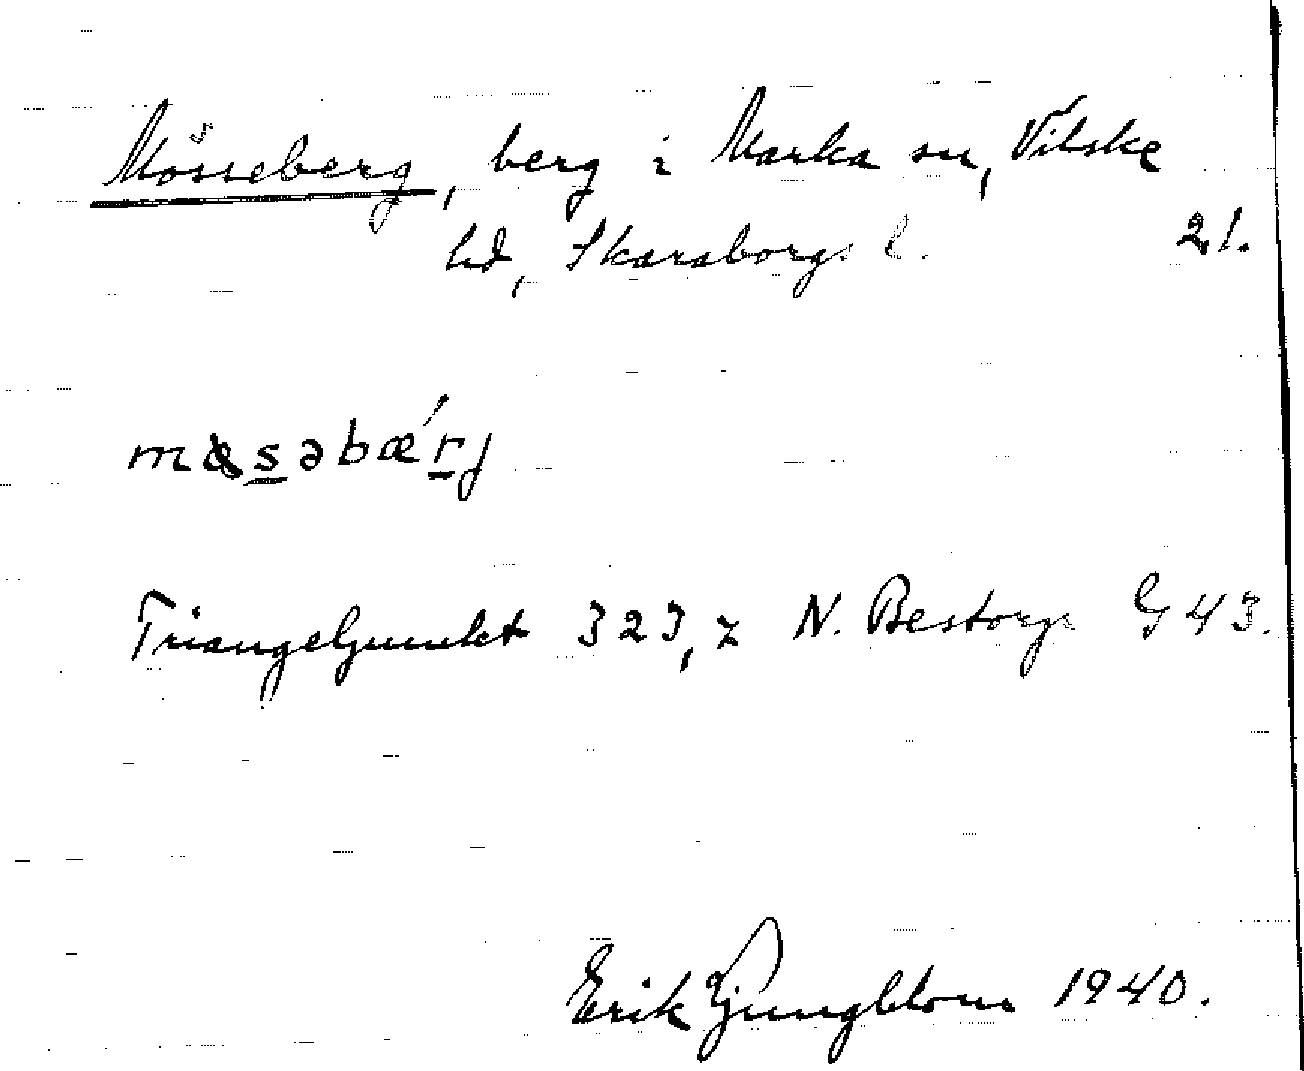 Mösseberg, berg i Marka sn, Vilske
hd, Skaraborgs l. 21.
məsəbæ´rj
Triangelpunkt 323,7 N. Bestorp G 43.
Erik Ljungblom 1940.